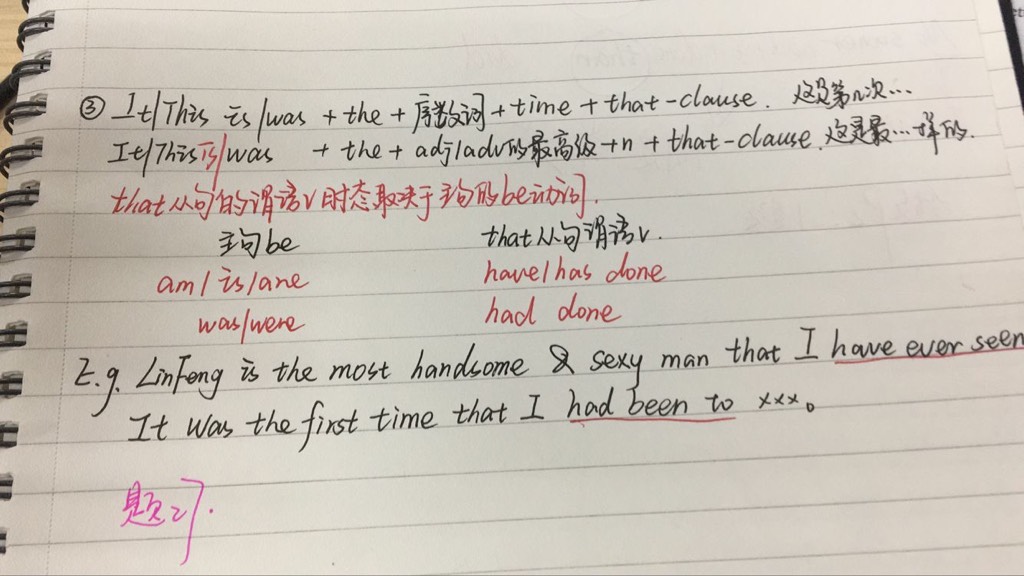 ③ It/This is/was + the + 序数词 + time + that-clause. 这是第n次…
It/This is/was + the + adj/adv的最高级+n + that-clause. 这是最…样的.
that从句的谓语v时态取决于主句的be动词.
主句be that从句谓语v.
am/is/are have/has done
was/were had done
E.g. LinFeng is the most handsome & sexy man that I have ever seen
It was the first time that I had been to xxx。
题2).